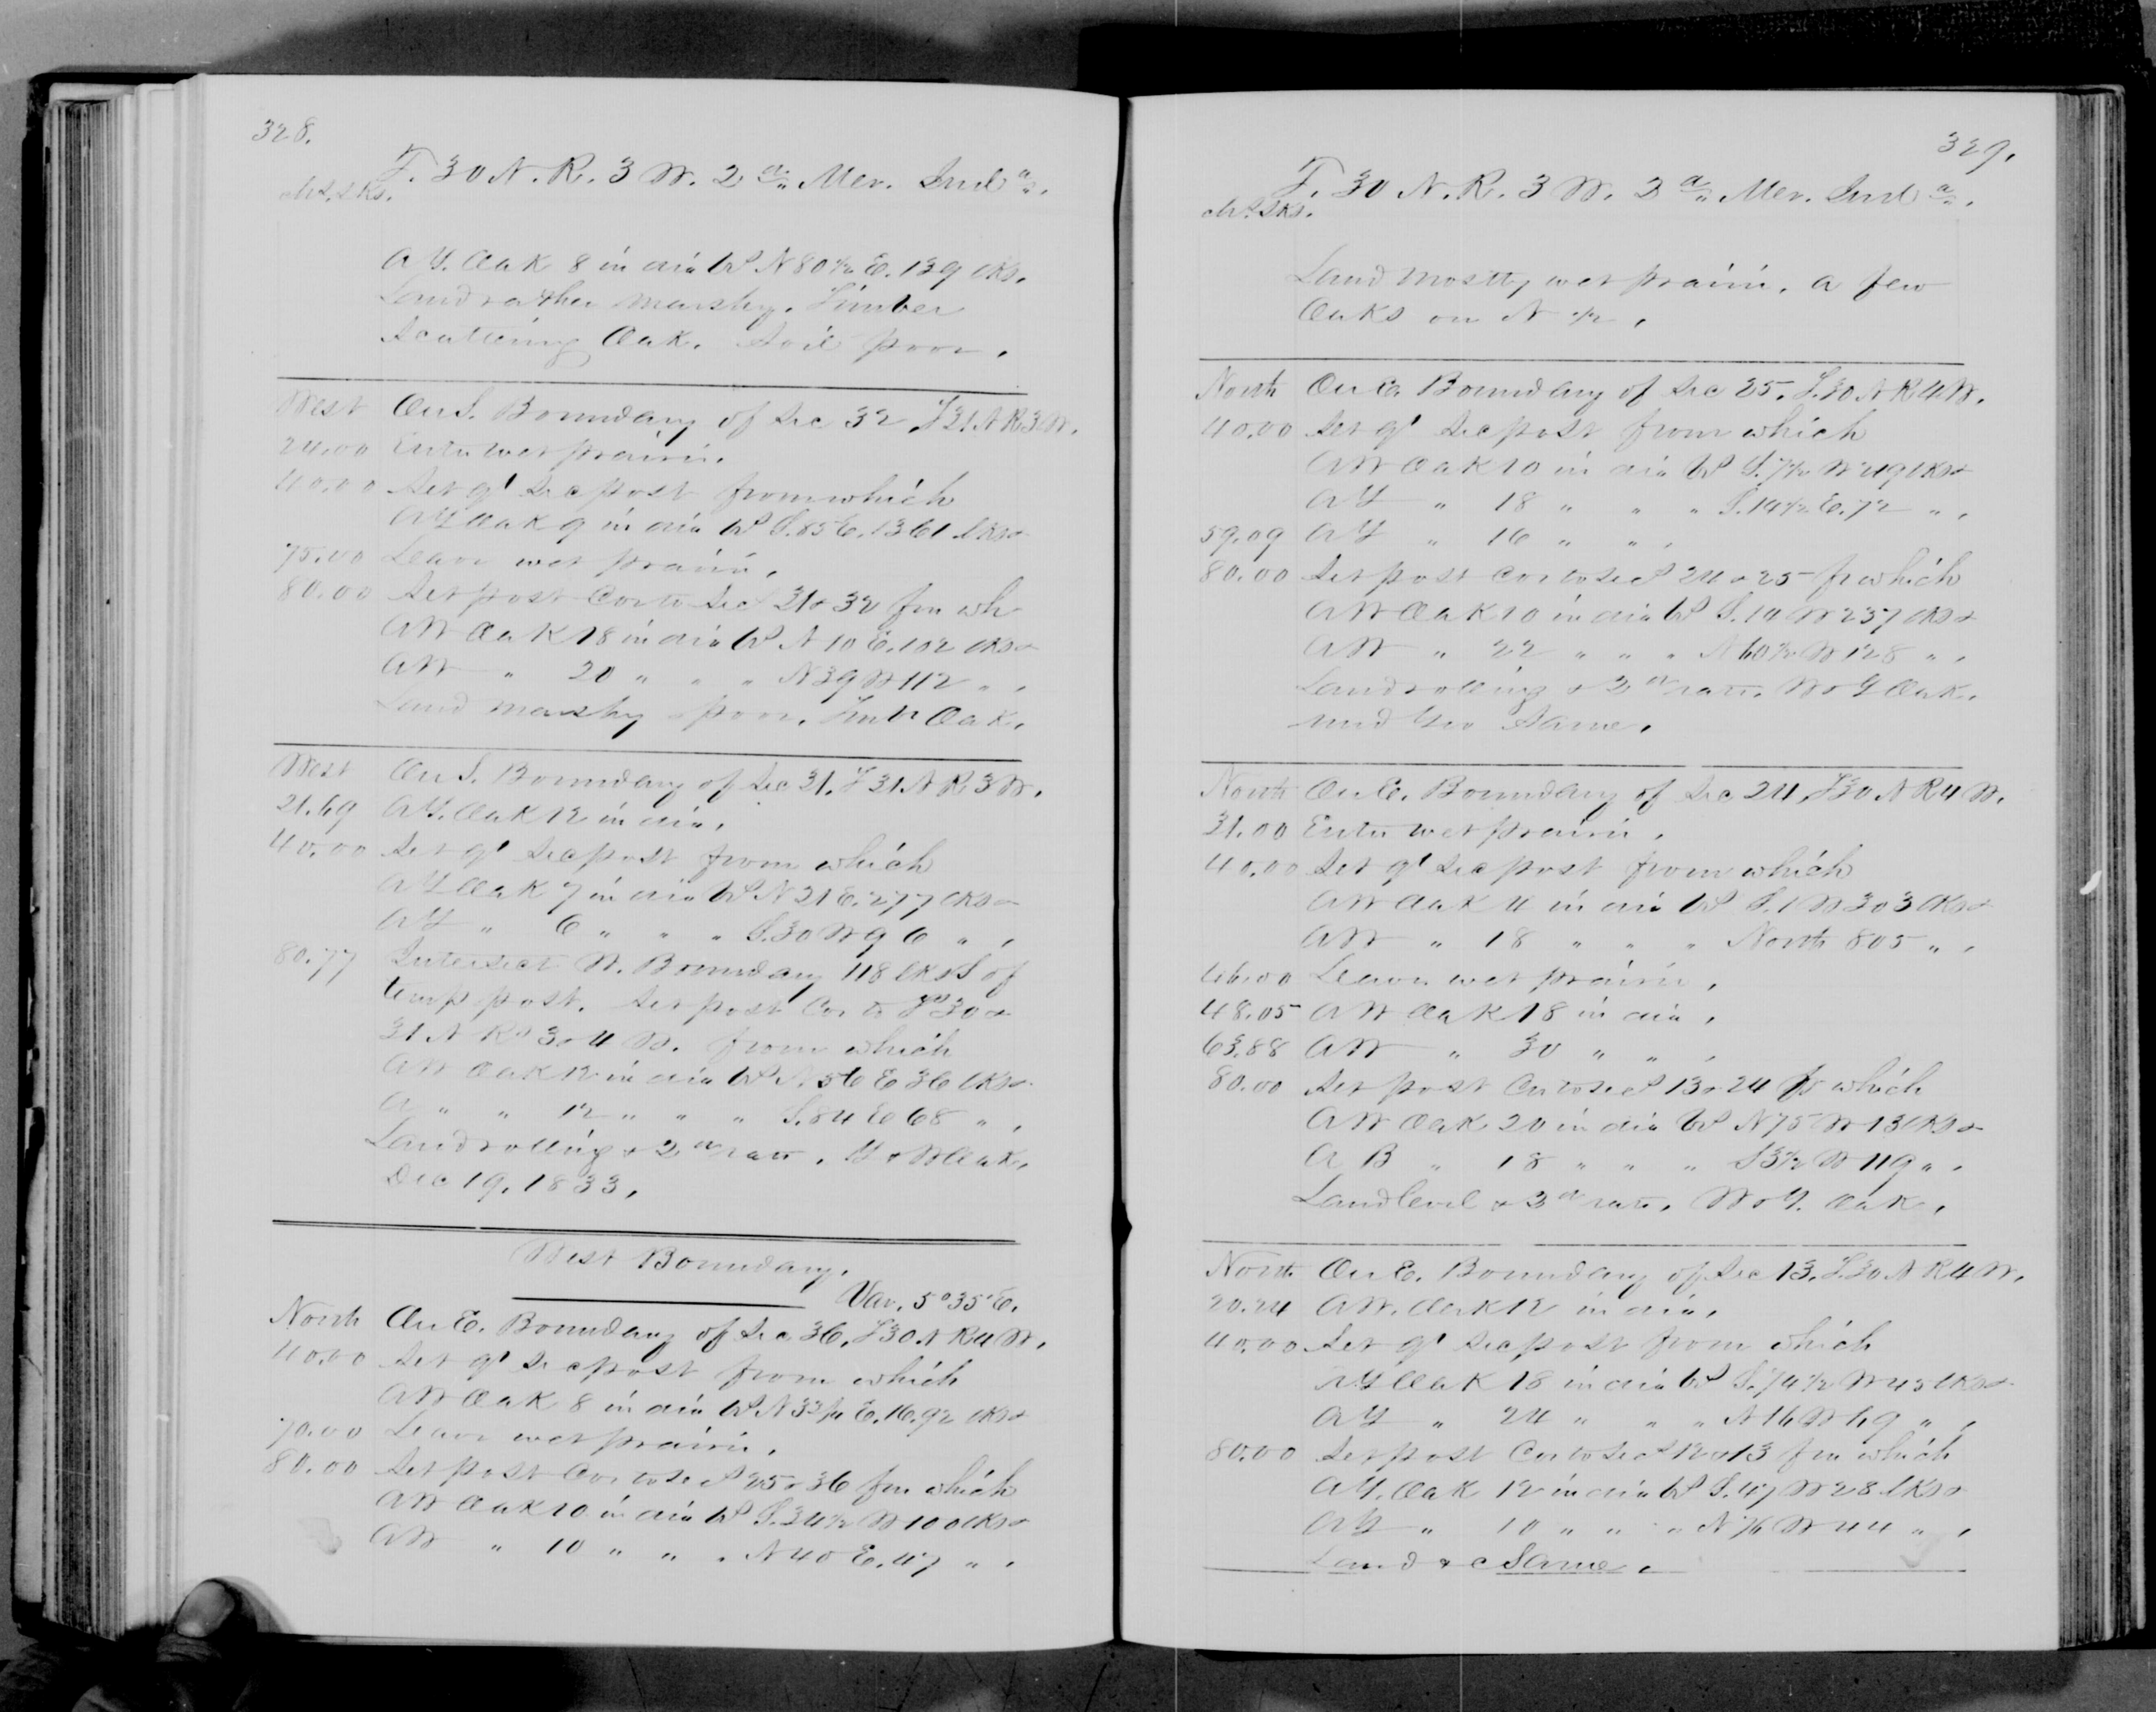 328.
T. 30 N. R. 3 W. 2d Mer. Inda.
chs. lks.
A Y. Oak 8 in dia brs N 80 1/2 E. 139 lks.
Land rather marshy. Timber
Scattering Oak. Soil poor.
West On S. Boundary of Sec 32, T 31 N R 3 W.
24.00 Enter wet prairie.
40.00 Set qr Sec post from which
A Y Oak 9 in dia brs S. 85 E. 1361 lks &
75.00 Leave wet prairie.
80.00 Set post Cor to Secs 31 & 32 fm wh
A W Oak 18 in dia brs N 10 E. 102 lks &
A W " 20 " " " N 39 W 112 " .
Land marshy & poor. Timbr Oak.
West On S. Boundary of Sec 31. T 31 N R 3 W.
21.69 A Y. Oak 12 in dia.
40.00 Set qr Sec post from which
A Y Oak 7 in dia brs N 21 E. 277 lks &
A Y " 6 " " " S. 30 W 96 " .
80.77 Intersect W. Boundary 118 lks S of
temp post. Set post Cor to Ts 30 &
31 N Rs 3 & 4 W. from which
A W Oak 12 in dia brs N 56 E 36 lks &
A " " 12 " " " S. 84 E 68 " .
Land rolling & 2d rate. Y & W Oak.
Dec 19. 1833.
West Boundary.
Var. 5° 35' E.
North On E. Boundary of Sec 36. T 30 N R 4 W.
40.00 Set qr Sec post from which
A W Oak 8 in dia brs N 33 1/4 E. 16.92 lks &
70.00 Leave wet prairie.
80.00 Set post Cor to Secs 25 & 36 fm which
A W Oak 10 in dia brs S. 34 1/2 W 100 lks &
A W " 10 " " " N 40 E. 47 " .
329.
T. 30 N. R. 3 W. 2d Mer. Inda.
chs. lks.
Land mostly wet prairie. A few
Oaks on N 1/2.
North On E. Boundary of Sec 25. T. 30 N R 4 W.
40.00 Set qr Sec post from which
A W Oak 10 in dia brs S. 7 1/2 W 49 lks &
A Y " 18 " " " S. 14 1/2 E. 72 " .
59.09 A Y " 16 " " .
80.00 Set post Cor to Secs 24 & 25 fr which
A W Oak 10 in dia brs S. 14 W 237 lks &
A W " 22 " " " N 60 1/2 W 128 " .
Land rolling & 2d rate. W & Y Oak.
und gro Same.
North On E. Boundary of Sec 24, T 30 N R 4 W.
31.00 Enter wet prairie.
40.00 Set qr Sec post from which
A W Oak 4 in dia brs S. 1 W 303 lks &
A W " 18 " " " North 805 " .
46.00 Leave wet prairie.
48.05 A W Oak 18 in dia.
63.88 A W " 30 " " .
80.00 Set post Cor to Secs 13 & 24 fr which
A W Oak 20 in dia brs N 75 W 13 lks &
A B " 18 " " " S 3 1/2 W 119 " .
Land level & 3d rate. W & Y. Oak.
North On E. Boundary of Sec 13. T. 30 N R 4 W.
20.24 A W. Oak 12 in dia.
40.00 Set qr Sec post from which
A Y Oak 18 in dia brs S. 74 1/2 W 45 lks &
A Y " 24 " " " N 16 W 69 " .
80.00 Set post Cor to Secs 12 & 13 fm which
A Y. Oak 12 in dia brs S. 47 W 28 lks &
A Y " 10 " " " N 76 W 44 " .
Land & c Same.